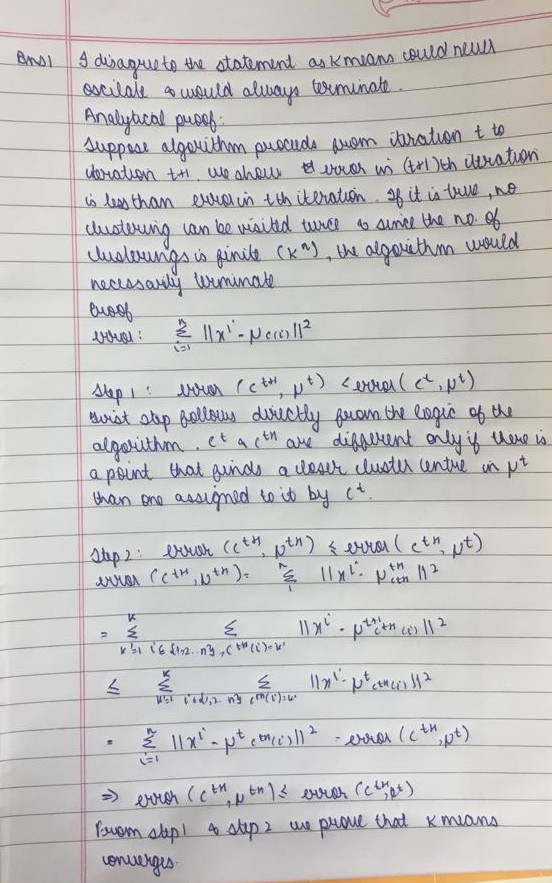 Ans1 I disagree to the statement as K means could never
oscilate & would always terminate.
Analytical proof:
Suppose algorithm proceeds from iteration t to
iteration t+1. we show error in (t+1)th iteration
is less than error in tth iteration. If it is true, no
clustering can be visited twice & since the no. of
clusterings is finite (K^n), the algorithm would
necessarily terminate
Proof
error: Σ_{i=1}^{n} ||x^i - μ_{c(i)}||^2
Step 1: error (c^{t+1}, μ^t) < error (c^t, μ^t)
First step follows directly from the logic of the
algorithm. c^t & c^{t+1} are different only if there is
a point that finds a closer cluster centre in μ^t
than one assigned to it by c^t.
Step 2: error (c^{t+1}, μ^{t+1}) ≤ error (c^{t+1}, μ^t)
error (c^{t+1}, μ^{t+1}) = Σ_{1}^{n} ||x^i - μ^{t+1}_{c^{t+1}}||^2
= Σ_{k'=1}^{K} Σ_{i∈{1,2..n}, c^{t+1}(i)=k'} ||x^i - μ^{t+1}_{c^{t+1}(i)}||^2
≤ Σ_{k'=1}^{K} Σ_{i∈{1,2..n} c^{t+1}(i)=k'} ||x^i - μ^t_{c^{t+1}(i)}||^2
= Σ_{i=1}^{n} ||x^i - μ^t_{c^{t+1}(i)}||^2 = error (c^{t+1}, μ^t)
⇒ error (c^{t+1}, μ^{t+1}) ≤ error (c^{t+1}, μ^t)
From step 1 & step 2 we prove that K means
converges.